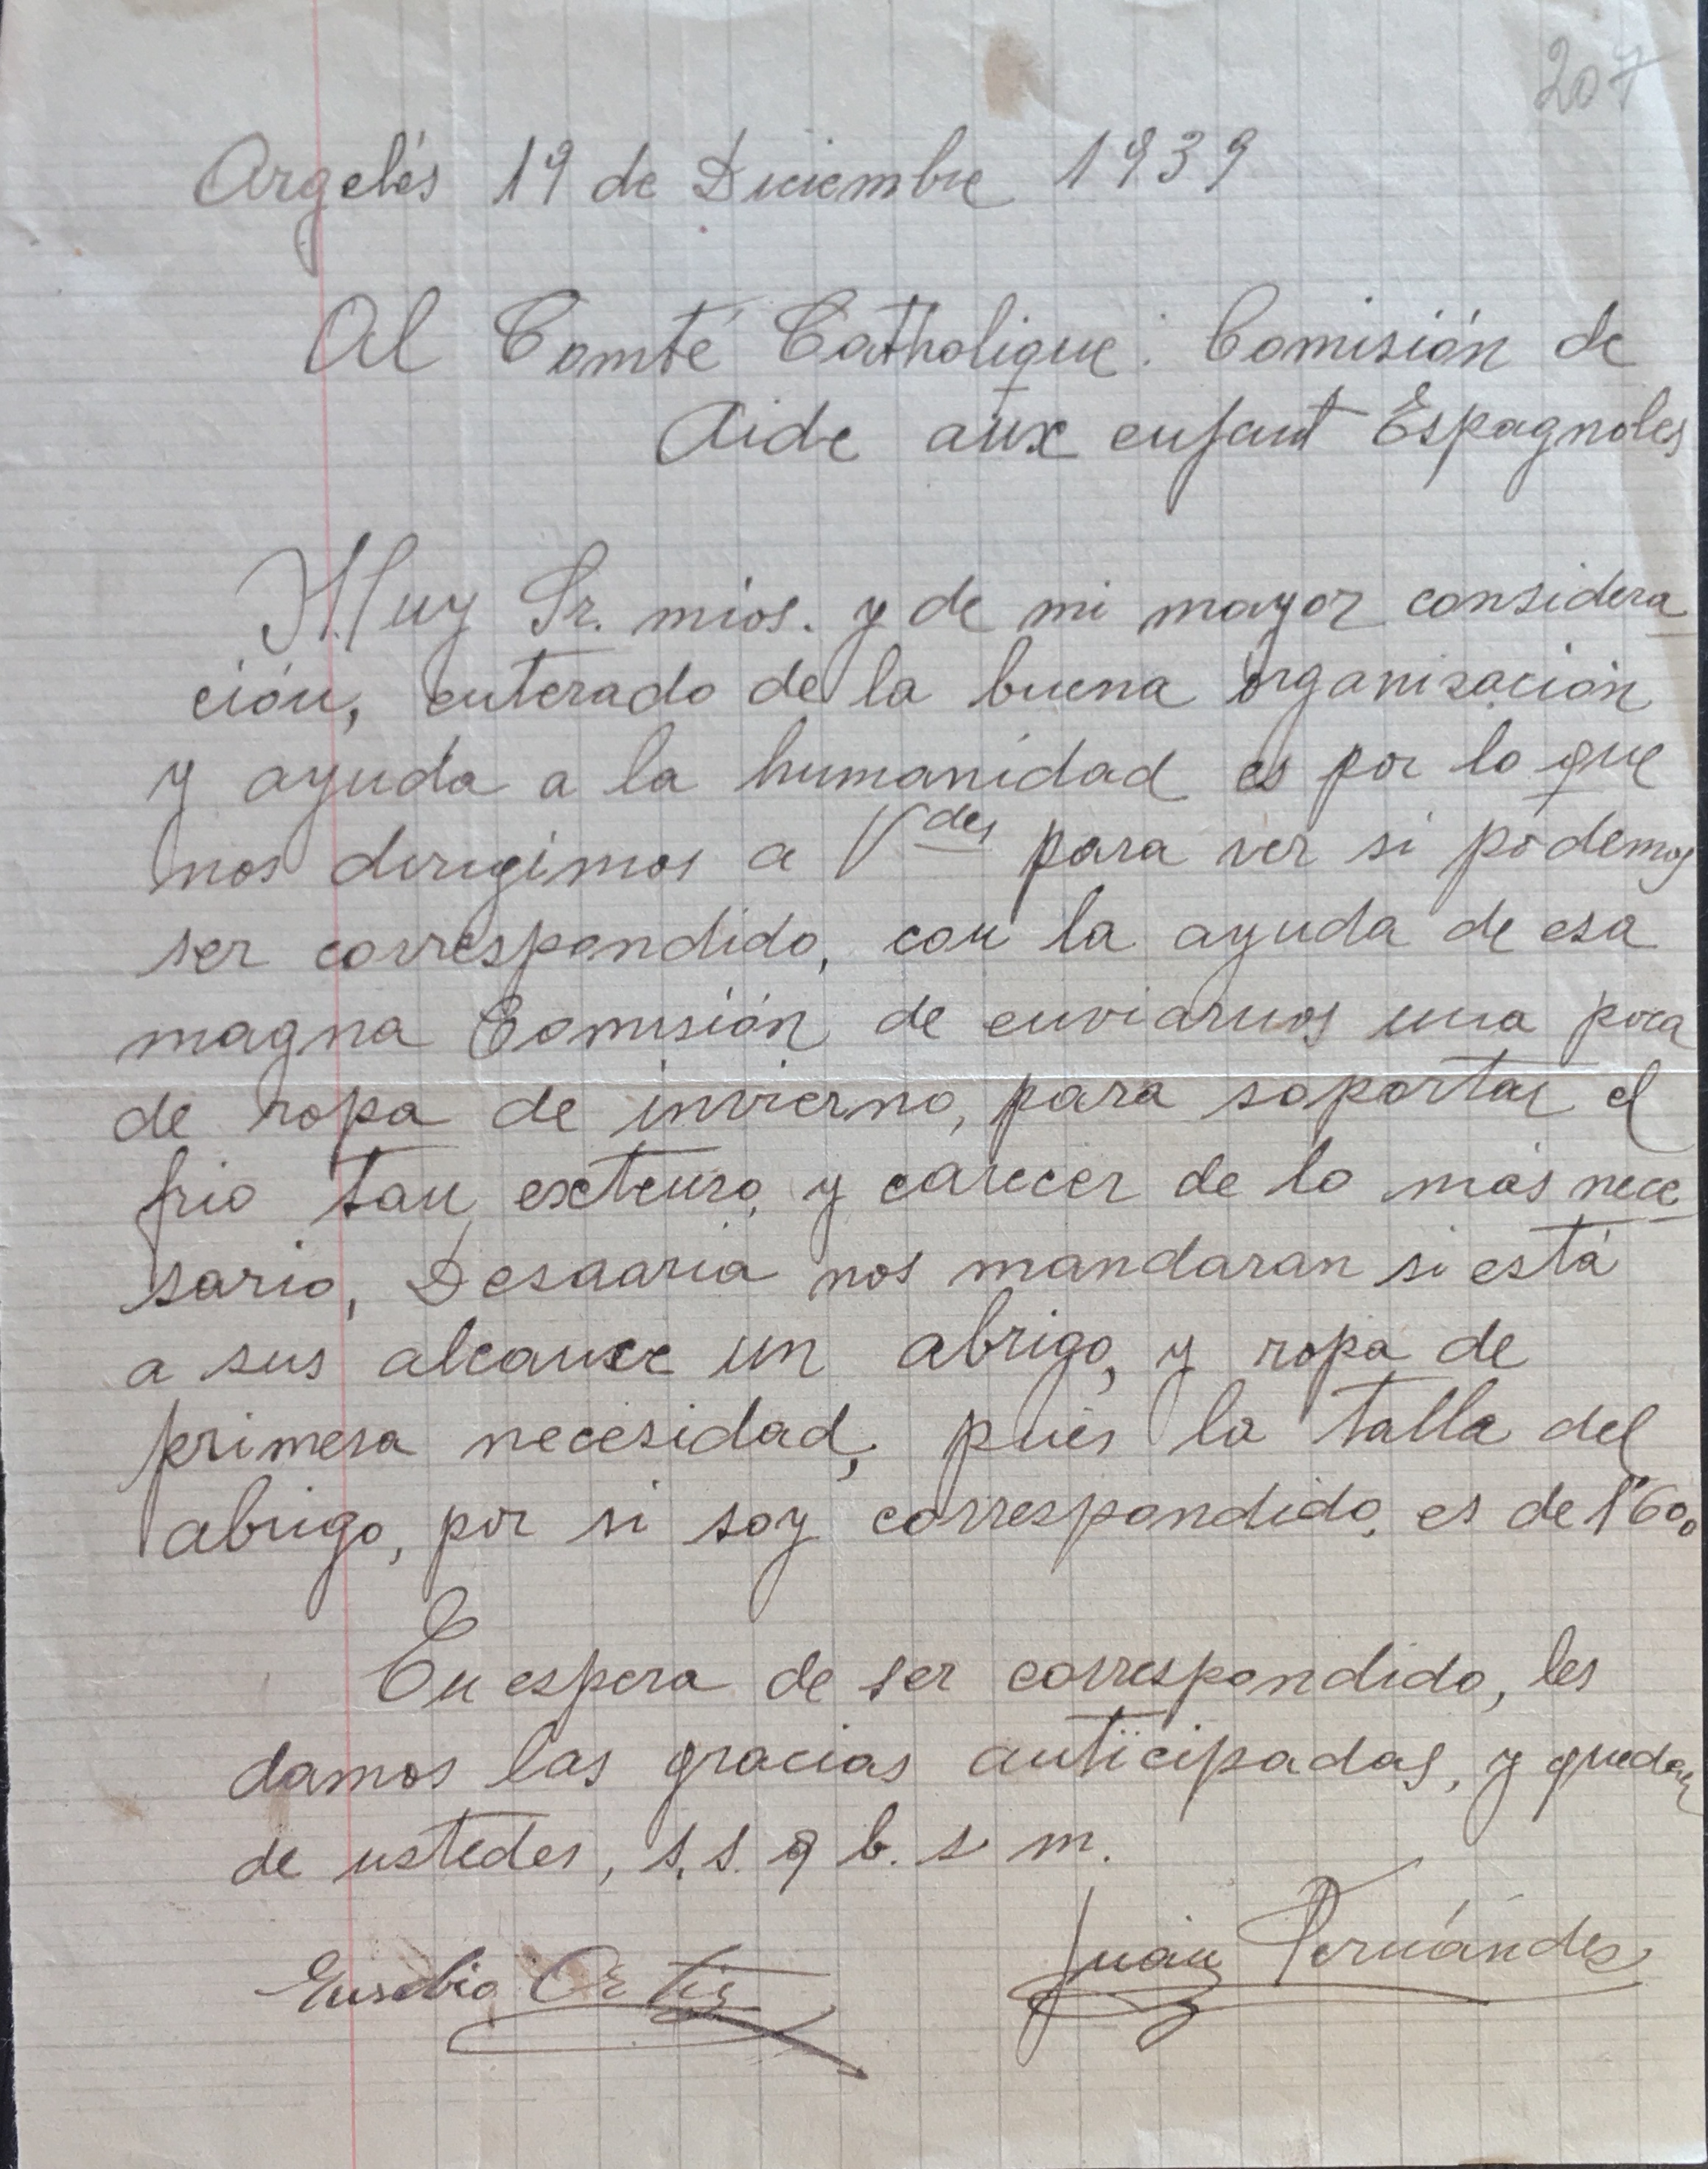 207
Argelés 19 de Diciembre 1939
Al Comté Catholique: Comisión de
Aide aux enfant Espagnoles
Muy Sr. mios. y de mi mayor considera
ción, enterado de la buena organisación
y ayuda a la humanidad es por lo que
nos dirigimos a Vdes para ver si podemos
ser correspondido, con la ayuda de esa
magna Comisión de enviarnos una poca
de ropa de invierno, para soportar el
frio tan extenso, y carecer de lo más nece
sario, Desaaria nos mandaran si está
a sus alcance un abrigo, y ropa de
primera necesidad, pues la talla del
abrigo, por si soy correspondido, es de 1'60,
En espera de ser correspondido, les
damos las gracias anticipadas, y quedan
de ustedes, s. s. q b. s m.
Eusebio Ortiz Juan Fernández